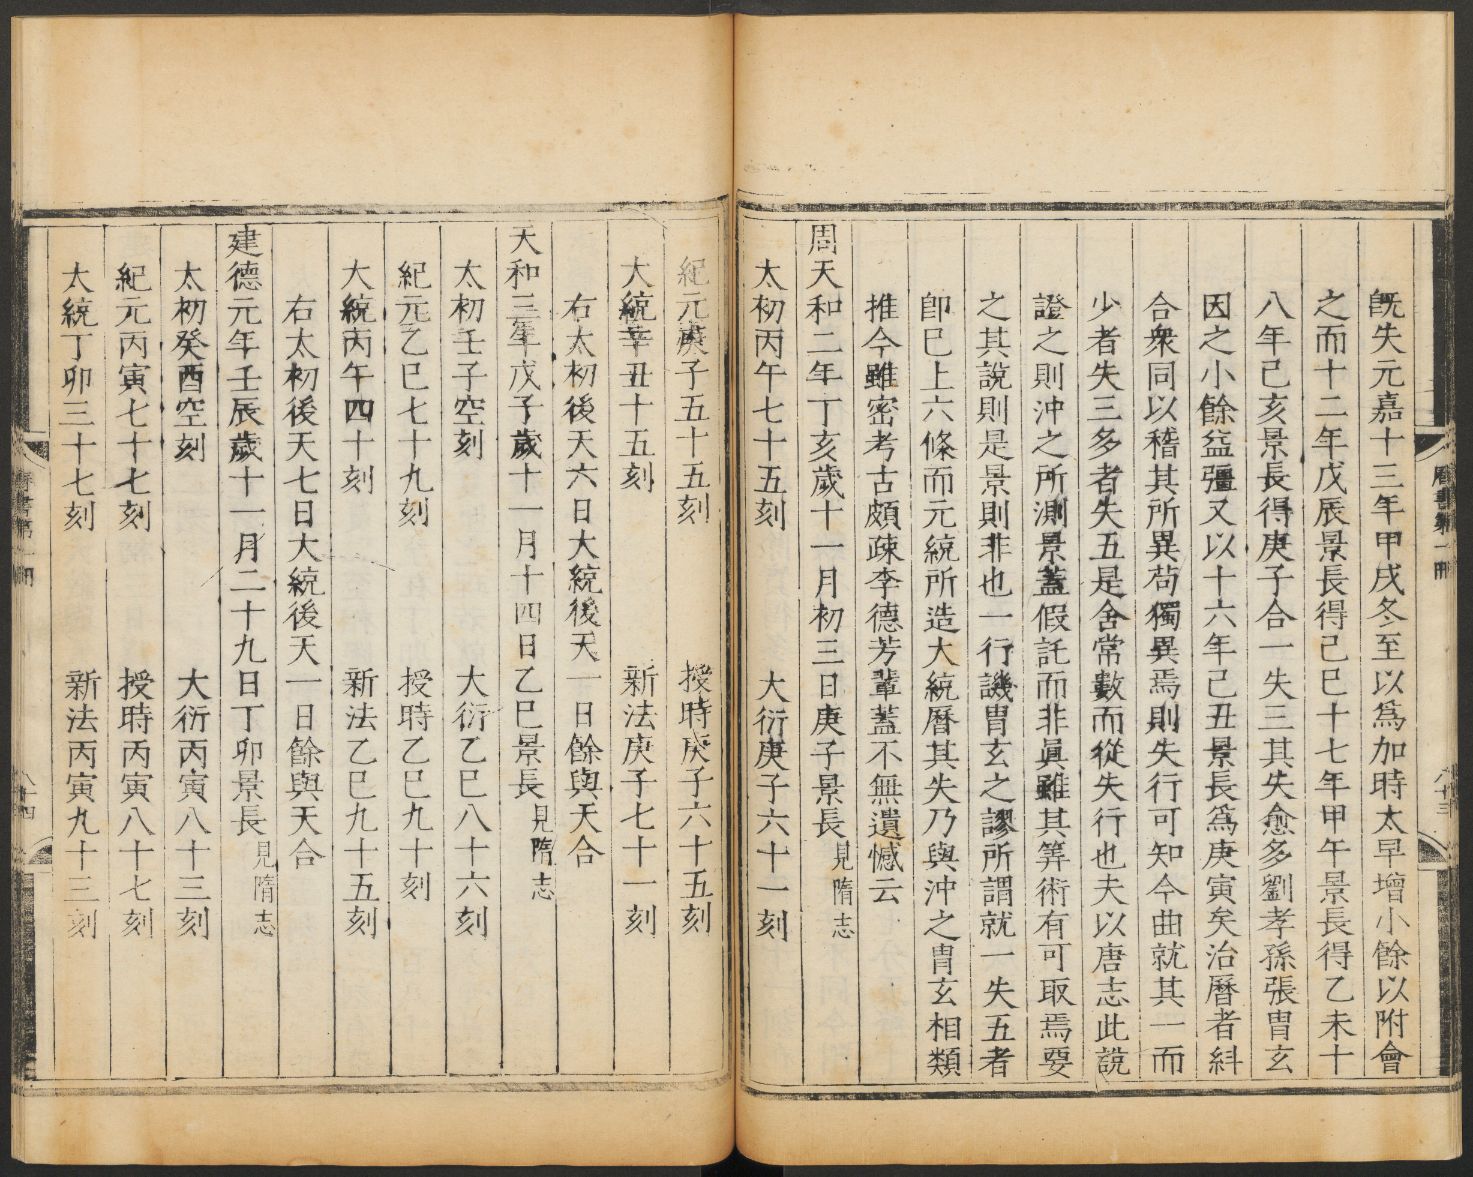 既失元嘉十三年甲戌冬至以爲加時太早增小餘以附會
之而十二年戊辰景長得己巳十七年甲午景長得乙未十
八年己亥景長得庚子合一失三其失愈多劉孝孫張冑玄
因之小餘益彊又以十六年己丑景長爲庚寅矣治曆者糾
合衆同以稽其所異苟獨異焉則失行可知今曲就其一而
少者失三多者失五是舍常數而從失行也夫以唐志此說
證之則沖之所測景蓋假託而非眞雖其筭術有可取焉要
之其說則是景則非也一行譏冑玄之謬所謂就一失五者
卽巳上六條而元統所造大統曆其失乃與沖之冑玄相類
推今雖密考古頗疎李德芳輩蓋不無遺憾云
周天和二年丁亥歲十一月初三日庚子景長見隋志
太初丙午七十五刻　大衍庚子六十一刻
紀元庚子五十五刻　授時庚子六十五刻
大統辛丑十五刻　新法庚子七十一刻
右太初後天六日大統後天一日餘與天合
天和三年戊子歲十一月十四日乙巳景長見隋志
太初壬子空刻　大衍乙巳八十六刻
紀元乙巳七十九刻　授時乙巳九十刻
大統丙午四十刻　新法乙巳九十五刻
右太初後天七日大統後天一日餘與天合
建德元年壬辰歲十一月二十九日丁卯景長見隋志
太初癸酉空刻　大衍丙寅八十三刻
紀元丙寅七十七刻　授時丙寅八十七刻
大統丁卯三十七刻　新法丙寅九十三刻